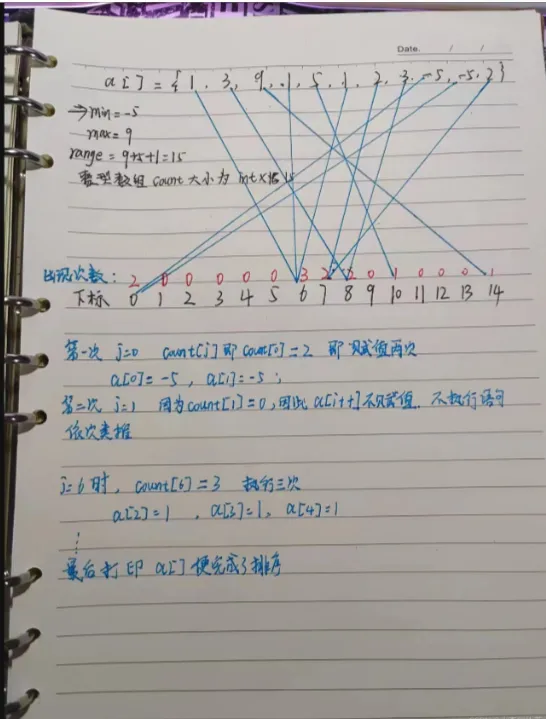 Date. / /
a[] = {1, 3, 9, 1, 5, 1, 2, 3, -5, -5, 2}
→min=-5
max=9
range = 9+5+1=15
整型数组 count 大小为 int×15
出现次数: 2 0 0 0 0 0 3 2 2 0 1 0 0 0 1
下标 0 1 2 3 4 5 6 7 8 9 10 11 12 13 14
第一次 j=0 count[j]即count[0]=2 即赋值两次
a[0]=-5, a[1]=-5;
第二次 j=1 因为count[1]=0,因此a[i++]不赋值. 不执行语句
依次类推
j=6时, count[6]=3 执行三次
a[2]=1 , a[3]=1, a[4]=1
⋮
最后打印 a[] 便完成了排序